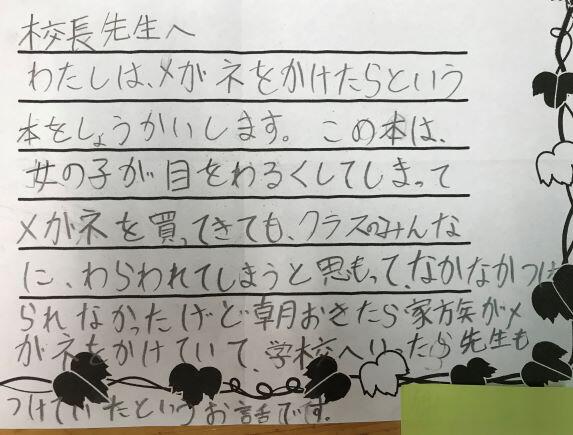 校長先生へ
わたしは、メガネをかけたらという
本をしょうかいします。この本は、
女の子が目をわるくしてしまって
メガネを買ってきても、クラスのみんな
に、わらわれてしまうと思もって、なかなかつけ
られ、なかったけど朝おきたら家族がメ
ガネをかけていて、学校へいったら先生も
つけていたというお話です。